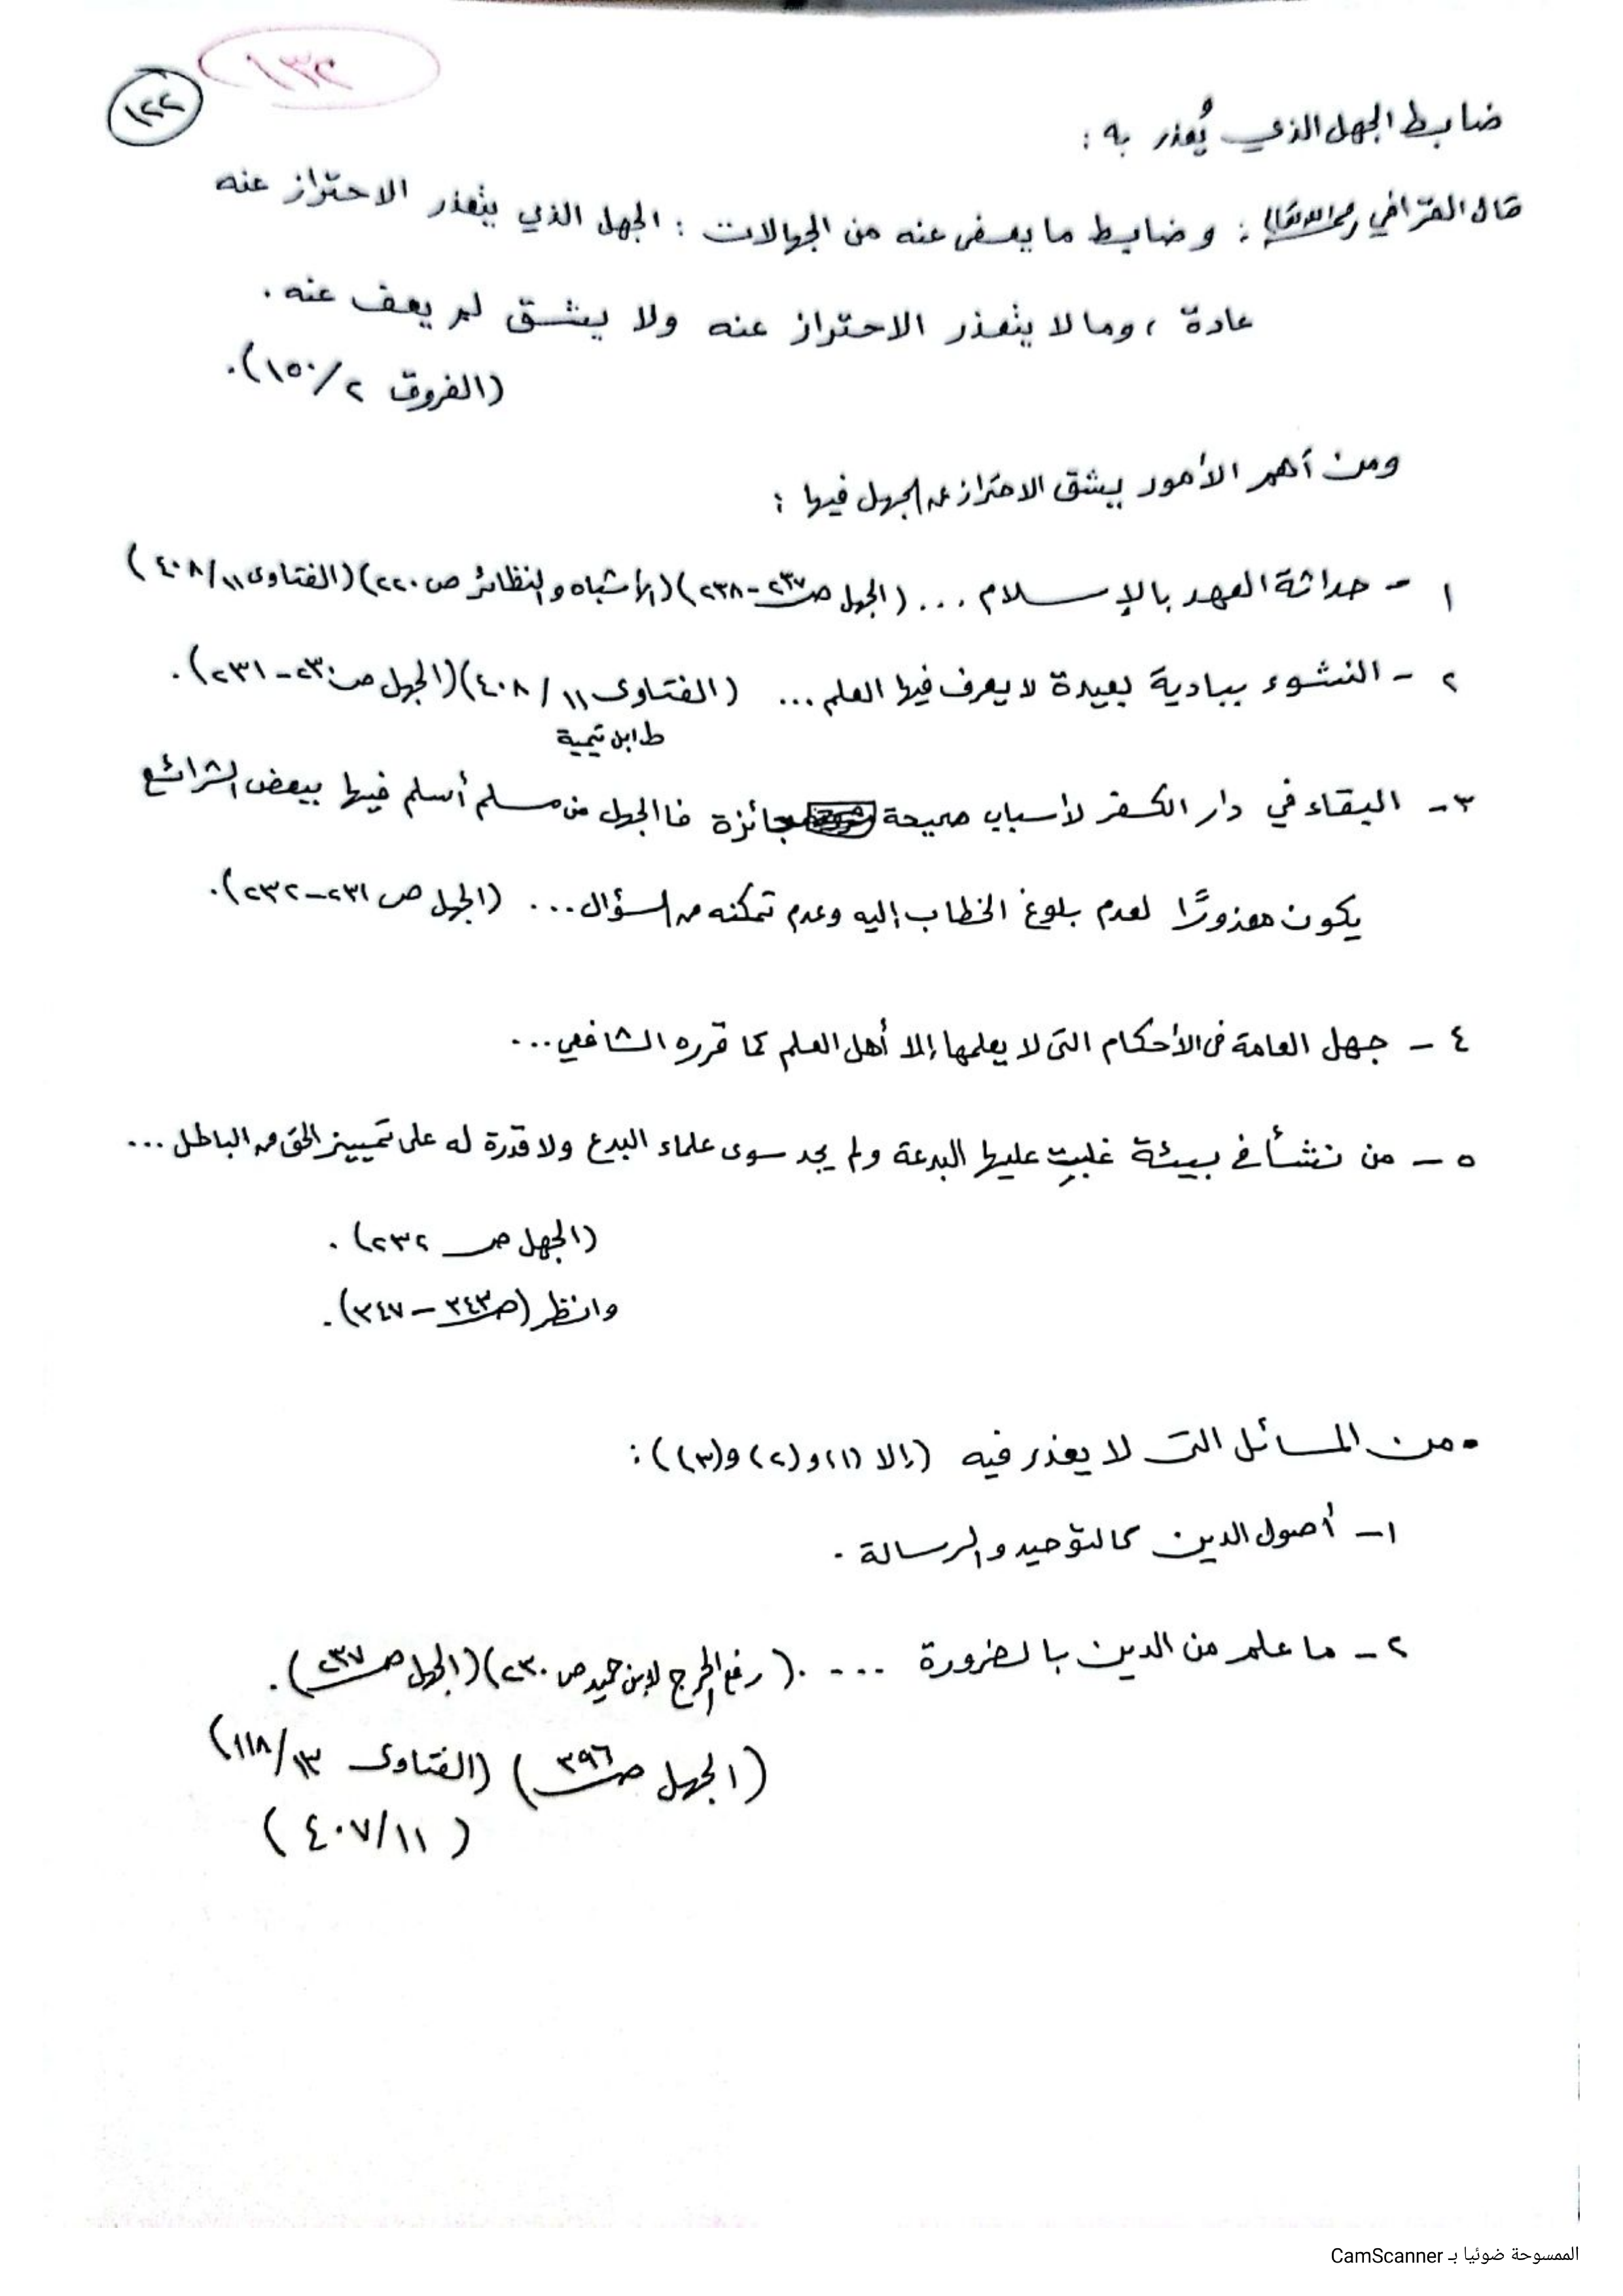 ١٣٢
١٢٢
ضابط الجهل الذي يُعذر به :
قال القرافي رحمه الله تعالى : وضابط ما يعفى عنه من الجهالات : الجهل الذي يتعذر الاحتراز عنه
عادة ، وما لا يتعذر الاحتراز عنه ولا يشق لم يعف عنه .
(الفروق ٢/١٥٠).
ومن أهم الأمور يشق الاحتراز عن الجهل فيها :
١ - حداثة العهد بالإسلام ... (الجهل ص ٢٣٧-٢٣٨)(الأشباه والنظائر ص ٢٢٠)(الفتاوى ١١/٤٠٨)
٢ - النشوء ببادية بعيدة لا يعرف فيها العلم ... (الفتاوى ١١/٤٠٨)(الجهل ص ٢٣٠-٢٣١).
ط ابن تيمية
٣- البقاء في دار الكفر لأسباب صحيحة جائزة فالجهل من مسلم أسلم فيها ببعض الشرائع
يكون معذورًا لعدم بلوغ الخطاب إليه وعدم تمكنه من السؤال ... (الجهل ص ٢٣١-٢٣٢).
٤ - جهل العامة في الأحكام التي لا يعلمها إلا أهل العلم كما قرره الشافعي ...
٥ - من نشأ في بيئة غلبت عليها البدعة ولم يجد سوى علماء البدع ولا قدرة له على تمييز الحق من الباطل ...
(الجهل ص ٢٣٢) .
وانظر (ص ٣٤٣-٣٤٧).
• من المسائل التي لا يعذر فيه (إلا (١) و(٢) و(٣)) :
١- أصول الدين كالتوحيد والرسالة .
٢- ما علم من الدين بالضرورة .... (رفع الحرج لابن حميد ص ٢٣٠)(الجهل ص ٢٣٧).
(الجهل ص ٣٩٦) (الفتاوى ١٣/١١٨)
(١١/٤٠٧)
الممسوحة ضوئيا بـ CamScanner